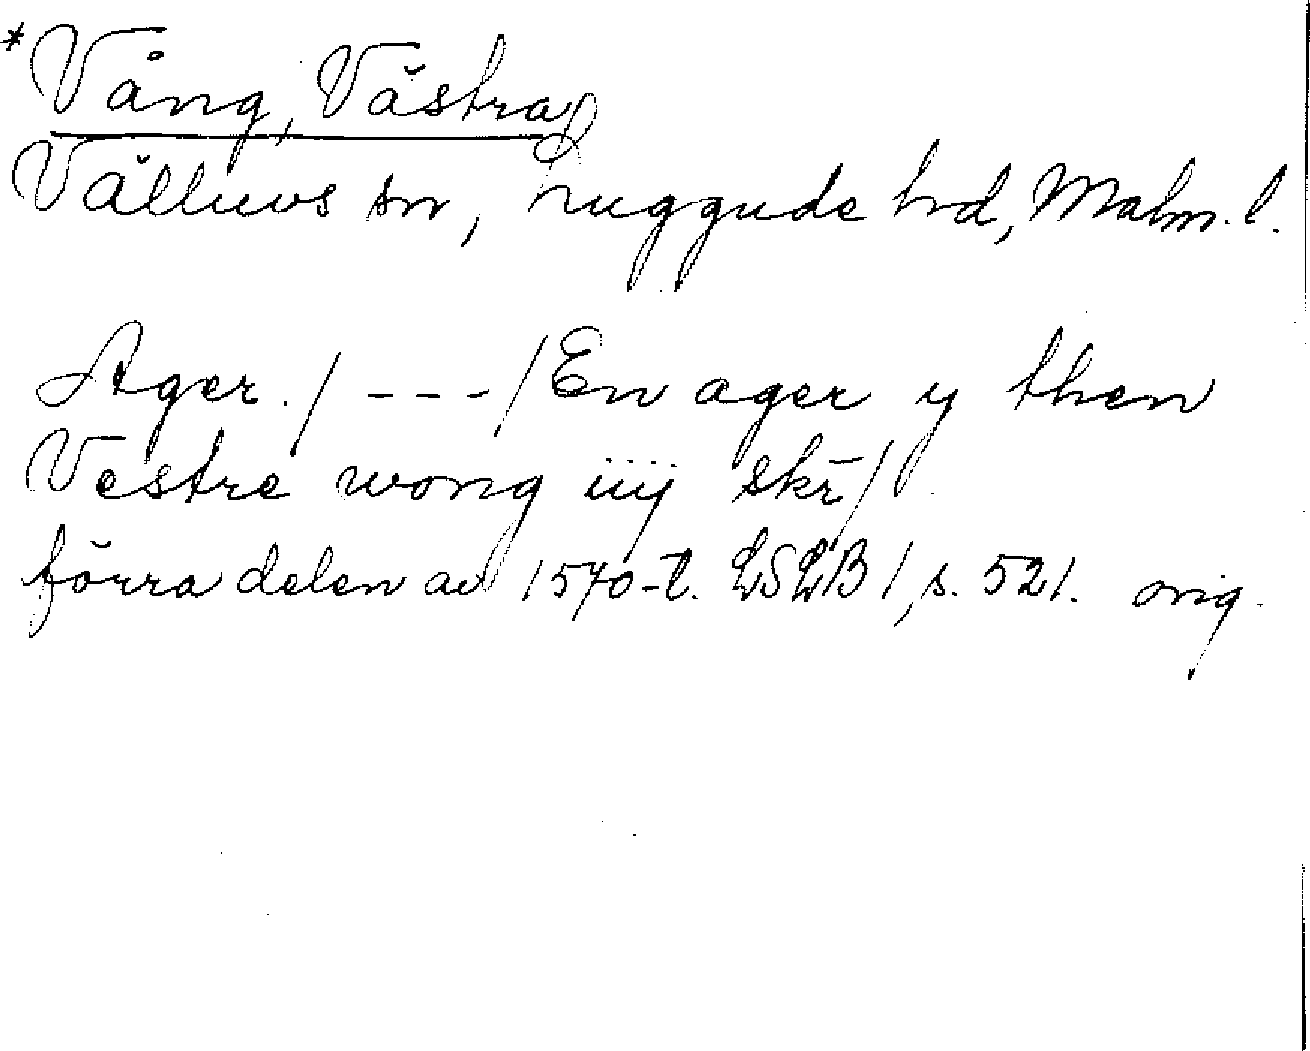 *Vång, Västra
Välluvs sn, Luggude hd, Malm. l.
Ager. / - - - / En ager y then
Vestre wong iiij skr̄ /
förra delen av 1570-t. LSLB 1, s. 521. orig.